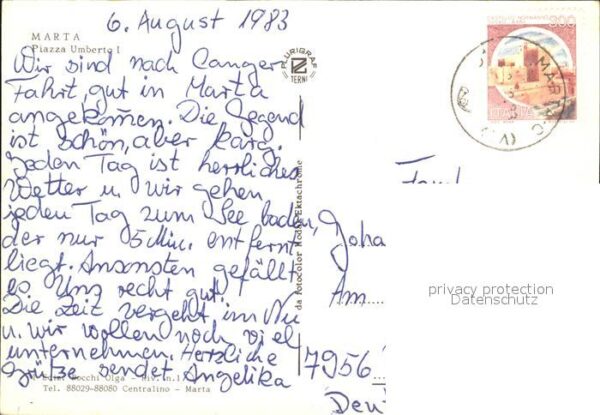 6. August 1983
MARTA
Piazza Umberto I
Wir sind nach langer
Fahrt gut in Marta
angekommen. Die Gegend
ist schön, aber karg.
Jeden Tag ist herrliches
Wetter u. wir gehen
jeden Tag zum See baden,
der nur 5 Min. entfernt
liegt. Ansonsten gefällt
es uns recht gut.
Die Zeit vergeht im Nu
u. wir wollen noch viel
unternehmen. Herzliche
Grüße sendet Angelika
Rocchi Olga - Riv. n. 1
Tel. 88029-88080 Centralino - Marta
PLURIGRAF
TERNI
da Fotocolor Kodak Ektachrome
300
ITALIA
MARTA
Fam
Joha
Am
7956
Deu
privacy protection
Datenschutz